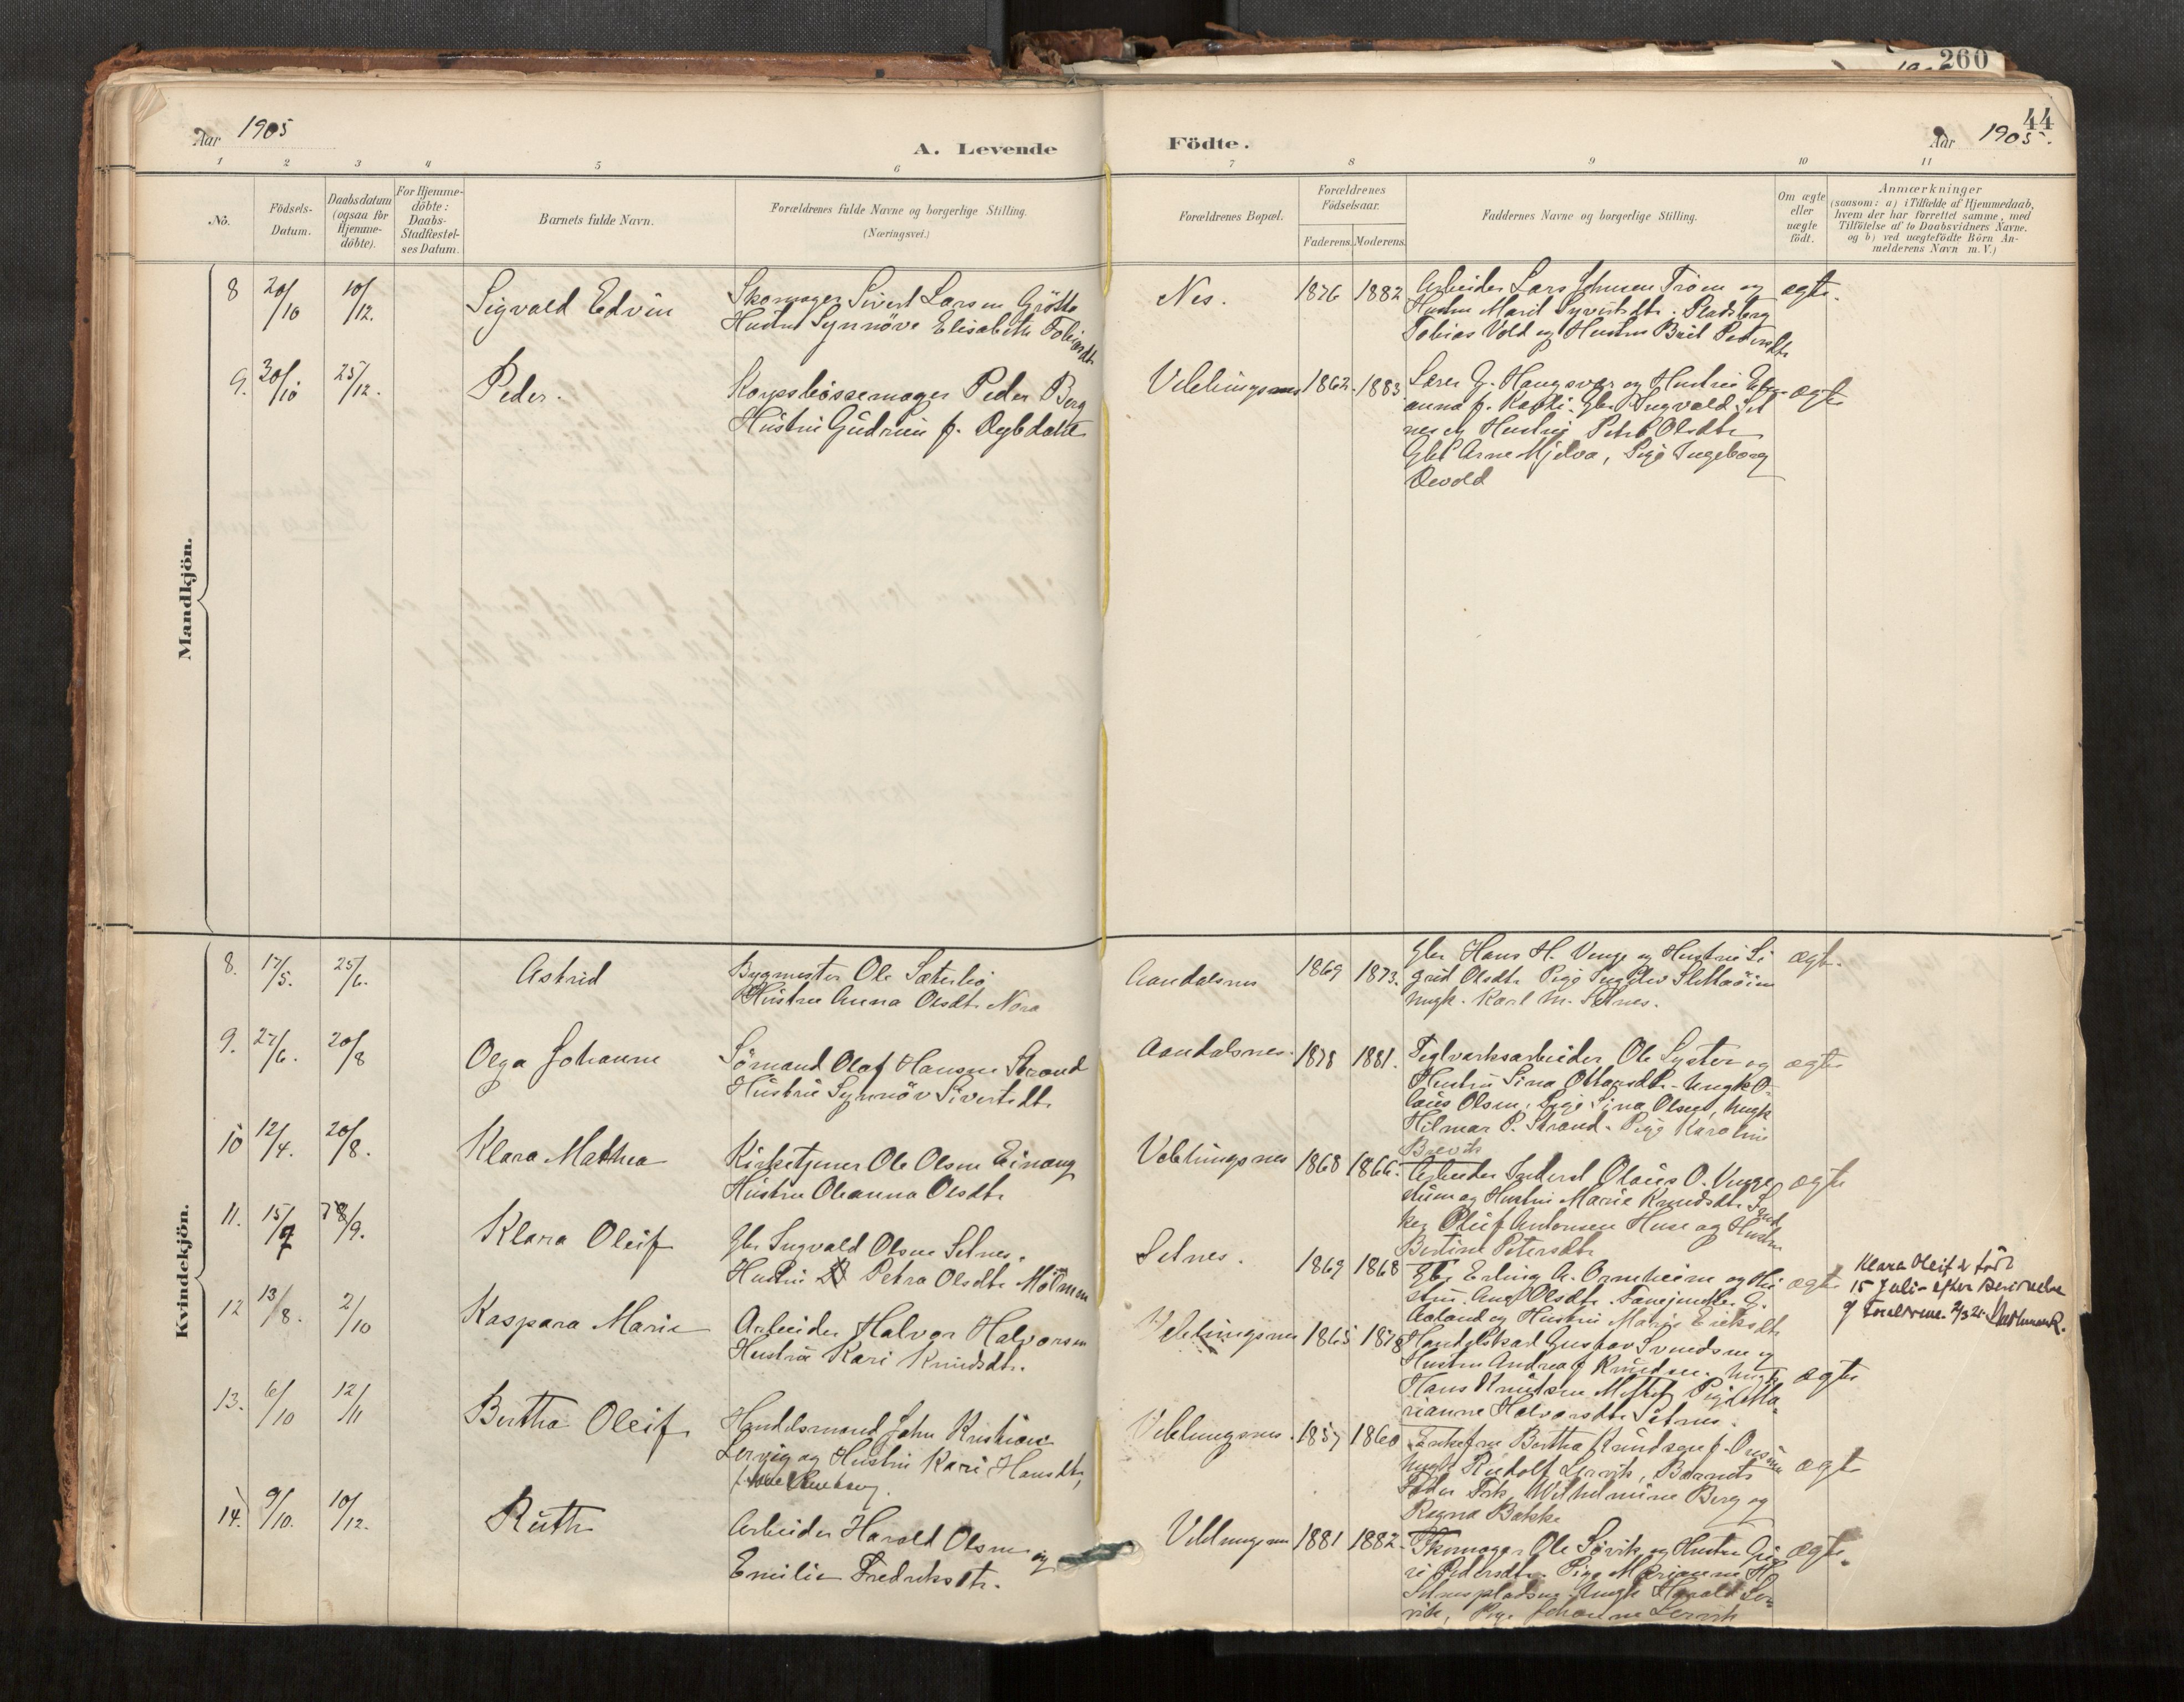 260
44
Aar 1905
A. Levende
Födte.
Aar 1905.
1 2 3 4 5 6 7 8 9 10 11
No.
Födsels-
Datum.
Daabsdatum
(ogsaa for
Hjemme-
döbte).
For Hjemme-
döbte:
Daabs-
Stadfæstel-
ses Datum.
Barnets fulde Navn.
Forældrenes fulde Navne og borgerlige Stilling.
(Næringsvei.)
Forældrenes Bopæl.
Forældrenes
Födselsaar.
Faderens. Moderens.
Faddernes Navne og borgerlige Stilling.
Om ægte
eller
uægte
födt.
Anmærkninger
(saasom: a) i Tilfælde af Hjemmedaab,
hvem der har forrettet samme, med
Tilföielse af to Daabsvidners Navne.
og b) ved uægtefödte Börn An-
melderens Navn m. V.)
Mandkjön.
8 20/10 10/12. Sigvald Edvin
Skomager Sivert Larsen Grötte
Hustru Synnöve Elisabeth Tobiasdtr
Nes. 1876 1882
Arbeider Lars Johnsen Troen og
Hustru Marit Syvertsdtr. Pladsberg
Tobias Vold og Hustru Brit Petersdtr
ægte.
9. 30/10 25/12. Peder.
Korpsbössemager Peder Berg
Hustru Gudrun f. Dybdahl
Veblungsnes 1862. 1883.
Lærer G. Haugsvær og Hustru
anna f. Gbr Ingvald Set
nes og Hustru Petra Olsdtr
Gbr Arne Mjelva, Pige Ingeborg
Devold
ægte
Kvindekjön.
8. 17/5. 25/6. Astrid
Bygmester Ole Sæterbö
Hustru Anna Olsdtr Nora
Aandalsnes 1869 1873.
Gbr Hans H. Venge og Hustru Si
grid Olsdtr Pige Slettaöien
Ungk. Karl M. Setnes.
ægte.
9. 27/6. 20/8 Olga Johanne
Sömand Olaf Hansen Strand
Hustru Synnöv Sivertsdtr
Aandalsnes. 1878 1881.
Teglværksarbeider Ole Lyster og
Hustru Sina Ottarsdtr. Ungk O-
laus Olsen, Pige Sina Olsen, Ungk
Hilmar P. Strand. Pige Karoline
Brevik
ægte
10 12/4. 20/8. Klara Mathea
Kirketjener Ole Olsen Einang
Hustru Oleanna Olsdtr
Veblungsnes 1868 1866.
Arbeider Inderst Olaus O. Venge
og Hustru Marie Knudsdtr
Oluf Antonsen Huse og Hustru
Bertine Petersdtr
ægte
11. 15/7 /9. Klara Oleif
Gbr Ingvald Olsen Setnes.
Hustru Petra Olsdtr Mölmen
Setnes. 1869 1868
Gbr Erling A. Ormheim og Hu
stru Olsdtr. G.
Aaland og Hustru Marie Eriksdtr
ægte
Klara Oleif er född
15 Juli - efter
af Foreldrene. 2/3 25.
12 13/8. 2/10 Kaspara Marie
Arbeider Halvor Halvorsen
Hustru Kari Knudsdtr.
Veblungsnes 1865 1878
Handelskarl Gustav Svendsen og
Hustru Andrea f Knudsen. Ungk
Hans Knudsen Pige Ma-
rianne Halvorsdtr Setnes.
ægte
13. 6/10 12/11 Bertha Oleif
Handelsmand John Kristian
Lervig og Hustru Kari Hansdtr,
Veblungsnes. 1857 1860
Enkefru Bertha Knudsen f.
Ungk Rudolf Lervik, Barnets
Fader Frk. Wilhelmine Berg og
Ragna Bakke
ægte
14. 9/10. 10/12. Ruth
Arbeider Harald Olsen og
Emilie Fredriksdtr.
Veblungsnes 1881 1882.
Skomager Ole Sövik og Hustru Gju
ri Pedersdtr. Pige Marianne H
Setnespladsen. Ungk Harald Ler-
vik, Pige Johanne Lervik
ægte.